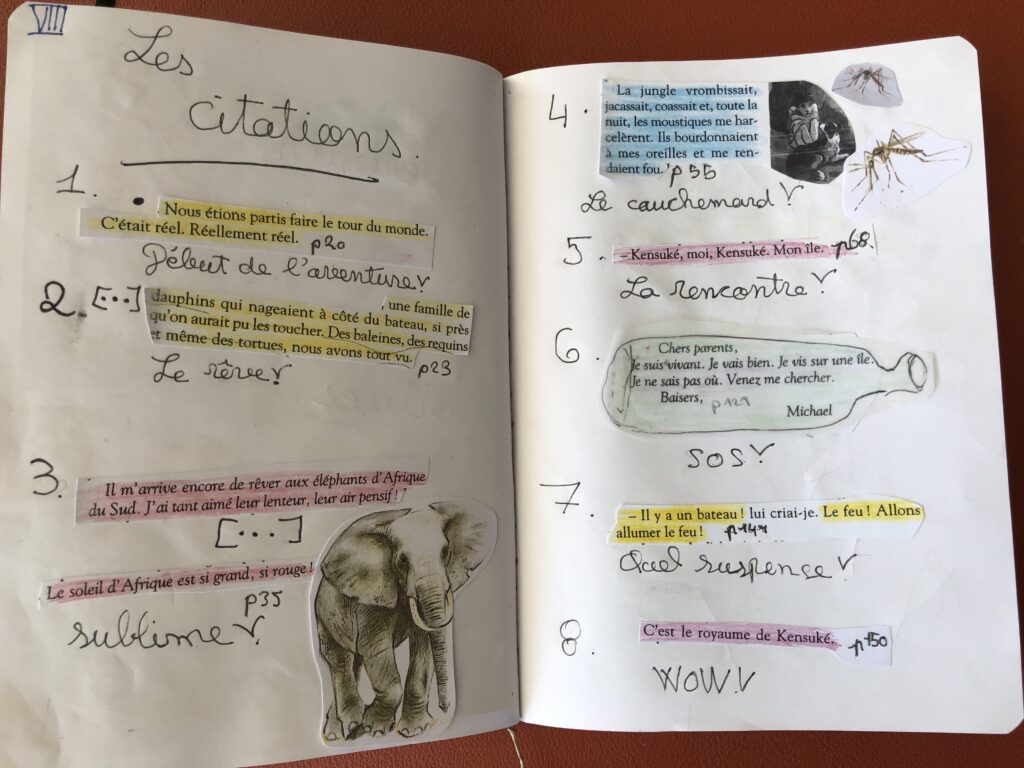 VIII
Les
citations.
1.
• Nous étions partis faire le tour du monde.
C'était réel. Réellement réel. p20
Début de l'aventure !
2. [...] une famille de
dauphins qui nageaient à côté du bateau, si près
qu'on aurait pu les toucher. Des baleines, des requins
et même des tortues, nous avons tout vu. p23
Le rêve !
3.
Il m'arrive encore de rêver aux éléphants d'Afrique
du Sud. J'ai tant aimé leur lenteur, leur air pensif !
[...]
Le soleil d'Afrique est si grand, si rouge !
p35
sublime !
4.
La jungle vrombissait,
jacassait, coassait et, toute la
nuit, les moustiques me har-
celèrent. Ils bourdonnaient
à mes oreilles et me ren-
daient fou. p55
Le cauchemard !
5. – Kensuké, moi, Kensuké. Mon île. p68.
La rencontre !
6.
Chers parents,
Je suis vivant. Je vais bien. Je vis sur une île.
Je ne sais pas où. Venez me chercher.
Baisers,
Michael
SOS !
7.
– Il y a un bateau ! lui criai-je. Le feu ! Allons
allumer le feu !
Quel suspense !
8. C'est le royaume de Kensuké. p150
WOW !